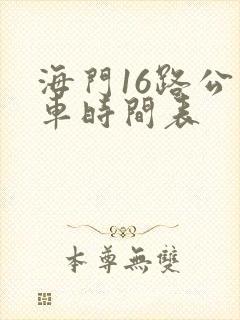 海門16路公
車時間表
本尊無雙